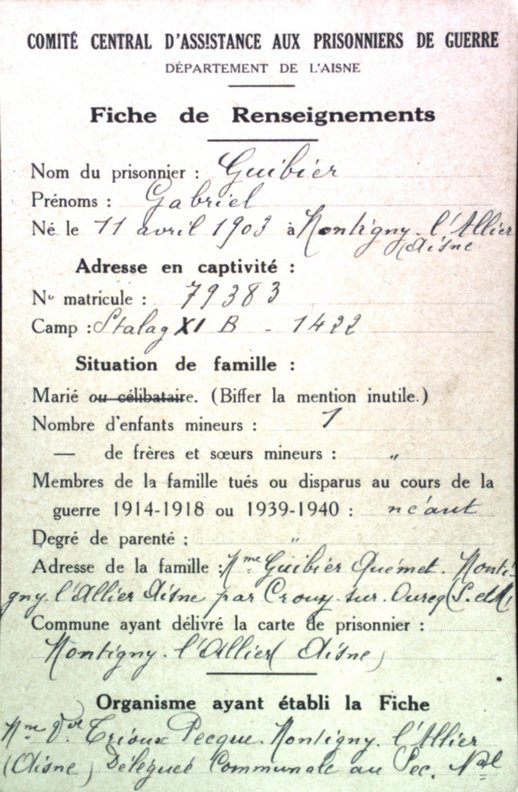 COMITÉ CENTRAL D'ASSISTANCE AUX PRISONNIERS DE GUERRE
DÉPARTEMENT DE L'AISNE
Fiche de Renseignements
Nom du prisonnier : Guibier
Prénoms : Gabriel
Né le 11 avril 1903 à Montigny-l'Allier
(Aisne
Adresse en captivité :
No matricule : 79383
Camp : Stalag XI B - 1422
Situation de famille :
Marié ou célibataire. (Biffer la mention inutile.)
Nombre d'enfants mineurs : 1
— de frères et sœurs mineurs : "
Membres de la famille tués ou disparus au cours de la
guerre 1914-1918 ou 1939-1940 : néant
Degré de parenté : "
Adresse de la famille : Mme Guibier Quémet. Monti-
gny l'Allier Aisne par Crouy-sur-Ourcq (S. et M
Commune ayant délivré la carte de prisonnier :
Montigny-l'Allier (Aisne)
Organisme ayant établi la Fiche
Mme Vve Trioux Pecque Montigny-l'Allier
(Aisne) Déléguée Communale au Sec. Nal